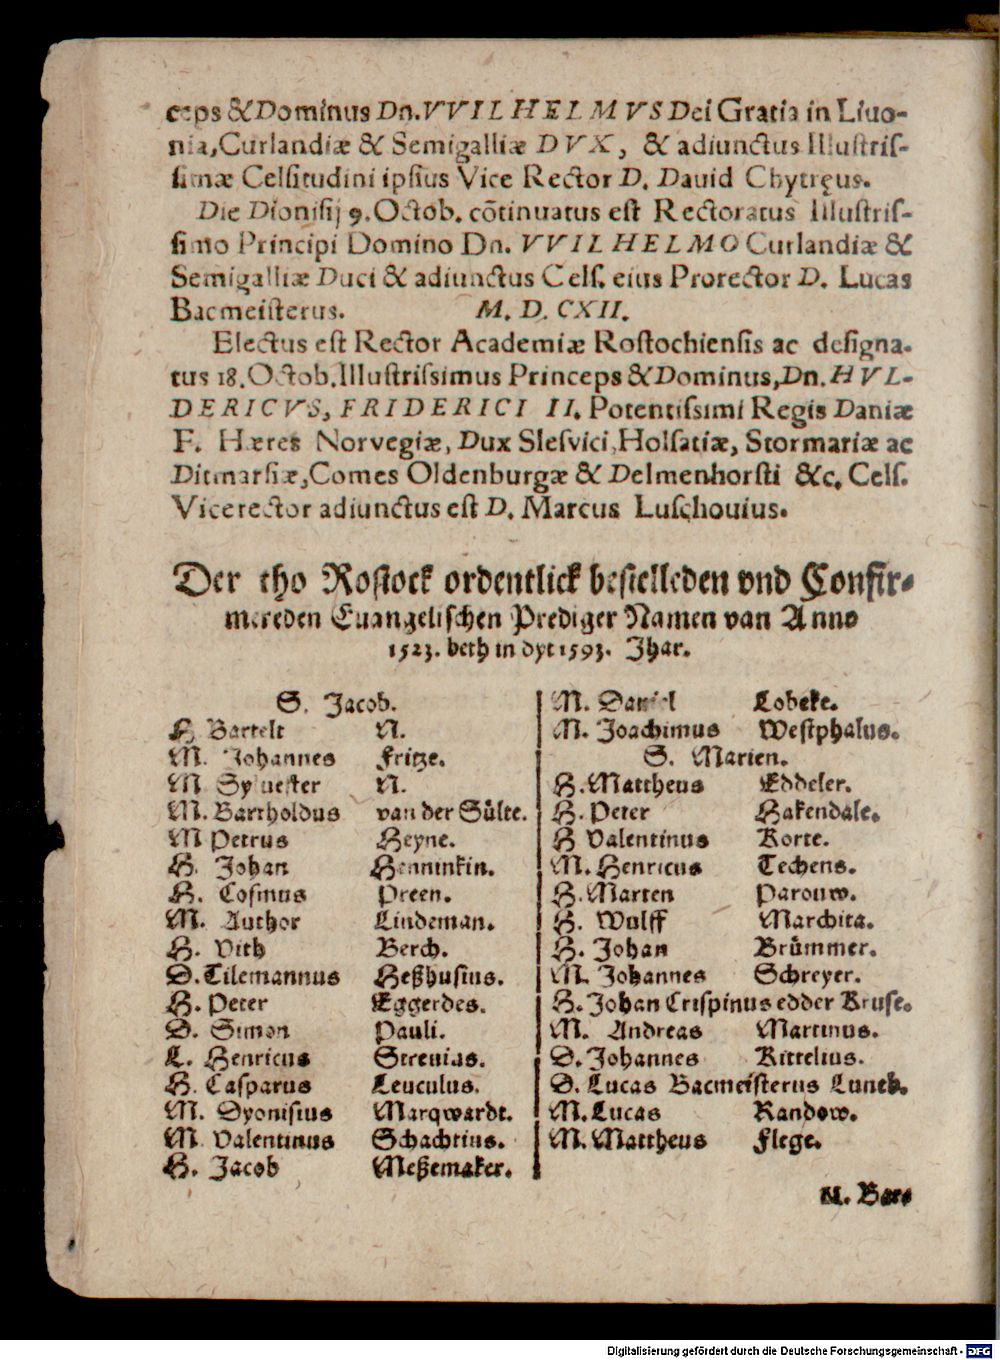 ceps & Dominus Dn. VVILHELMVS Dei Gratia in Liuo-
nia, Curlandiæ & Semigalliæ DVX, & adiunctus Illustris-
simæ Celsitudini ipsius Vice Rector D. Dauid Chytręus.
Die Dionisij 9. Octob. cõtinuatus est Rectoratus Illustris-
simo Principi Domino Dn. VVILHELMO Curlandiæ &
Semigalliæ Duci & adiunctus Cels. eius Prorector D. Lucas
Bacmeisterus. M. D. CXII.
Electus est Rector Academiæ Rostochiensis ac designa-
tus 18. Octob. Illustrissimus Princeps & Dominus, Dn. HVL-
DERICVS, FRIDERICI II. Potentissimi Regis Daniæ
F. Hæres Norvegiæ, Dux Slesvici, Holsatiæ, Stormariæ ac
Ditmarsiæ, Comes Oldenburgæ & Delmenhorsti &c. Cels.
Vicerector adiunctus est D. Marcus Luschouius.
Der tho Rostock ordentlick bestelleden vnd Confir-
mereden Euangelischen Prediger Namen van Anno
1523. beth in dyt 1593. Jhar.
S. Jacob.
H. Bartelt N.
M. Johannes Fritze.
M Syluester N.
M. Bartholdus van der Sülte.
M Petrus Heyne.
H. Johan Henninkin.
H. Cosmus Preen.
M. Author Lindeman.
H. Vith Berch.
D. Tilemannus Heßhusius.
H. Peter Eggerdes.
D. Simon Pauli.
L. Henricus Strenius.
H. Casparus Leuculus.
M. Dyonisius Marqwardt.
M Valentinus Schachtius.
H. Jacob Meßemaker.
M. Daniel Lobeke.
M. Joachimus Westphalus.
S. Marien.
H. Mattheus Eddeler.
H. Peter Hakendale.
H Valentinus Korte.
M. Henricus Techens.
H. Marten Parouw.
H. Wulff Marchita.
H. Johan Brümmer.
M. Johannes Schreyer.
H. Johan Crispinus edder Kruse.
M. Andreas Martinus.
D. Johannes Kittelius.
D. Lucas Bacmeisterus Luneb.
M. Lucas Randow.
M. Mattheus Flege.
M. Bar-
Digitalisierung gefördert durch die Deutsche Forschungsgemeinschaft - DFG